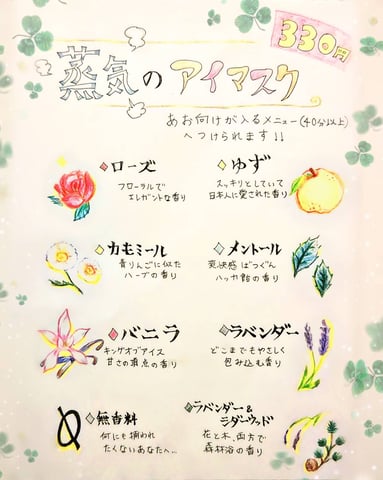 330円
蒸気のアイマスク
あお向けが入るメニュー(40分以上)
へつけられます!!
ローズ
フローラルで
エレガントな香り
ゆず
スッキリとしていて
日本人に愛された香り
カモミール
青りんごに似た
ハーブの香り
メントール
爽快感 ばつぐん
ハッカ飴の香り
バニラ
キングオブアイス
甘さの頂点の香り
ラベンダー
どこまでもやさしく
包み込む香り
無香料
何にも捕われ
たくないあなたへ…
ラベンダー&
ラダーウッド
花と木、両方で
森林浴の香り